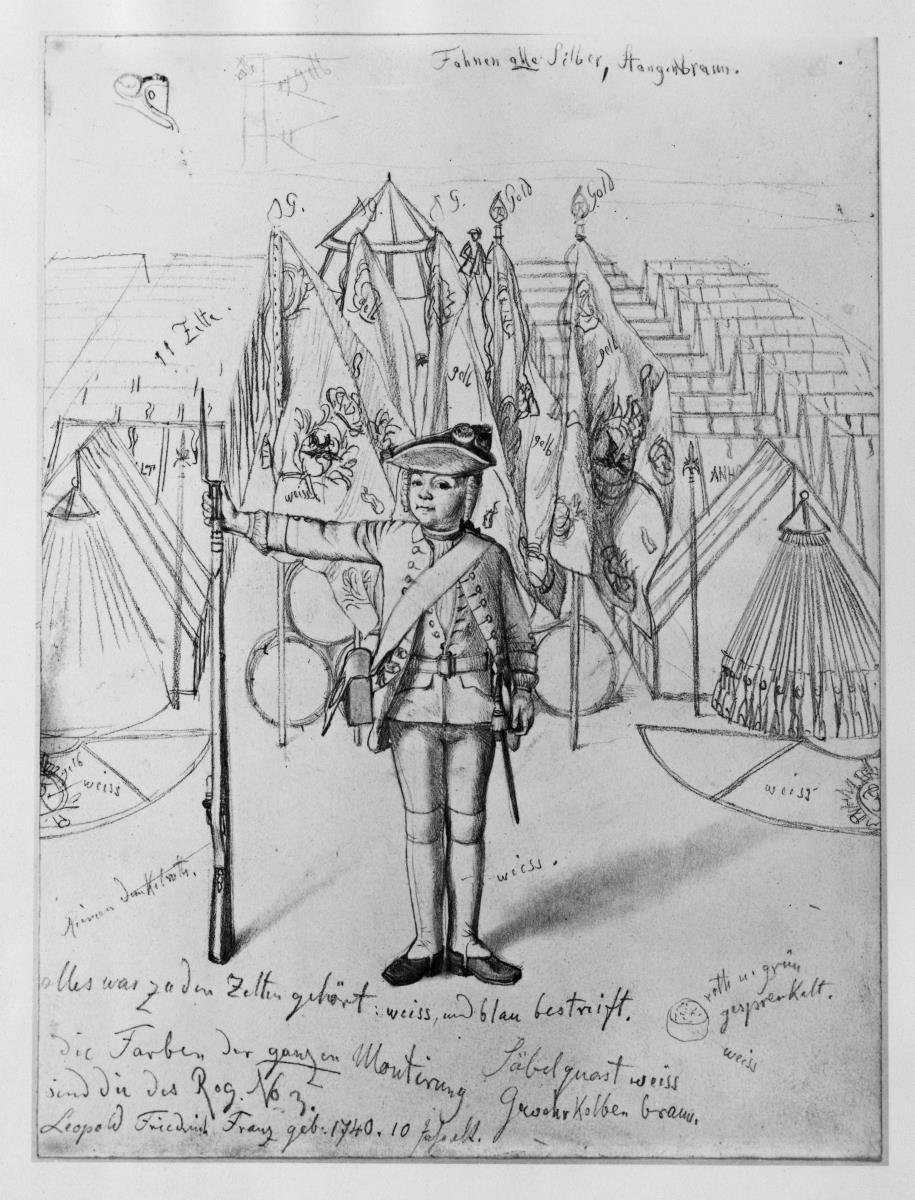 Fahnen alle Silber, Stangen braun.
gelb
G.
g.
G.
Gold
Gold
11 Zelte.
gelb
gelb
gelb
weiss.
LT
ANH
gelb
weiss
weiss
weiss.
Riemen dunkelroth.
alles was zu den Zelten gehört: weiss, und blau bestreift.
roth u. grün
gesprenkelt.
weiss
die Farben der ganzen Montirung
sind die des Reg. No 3.
Säbelquast weiss
Gewehrkolben braun.
Leopold Friedrich Franz geb. 1740. 10